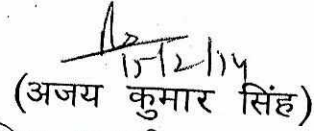 15/12/14
(अजय कुमार सिंह)